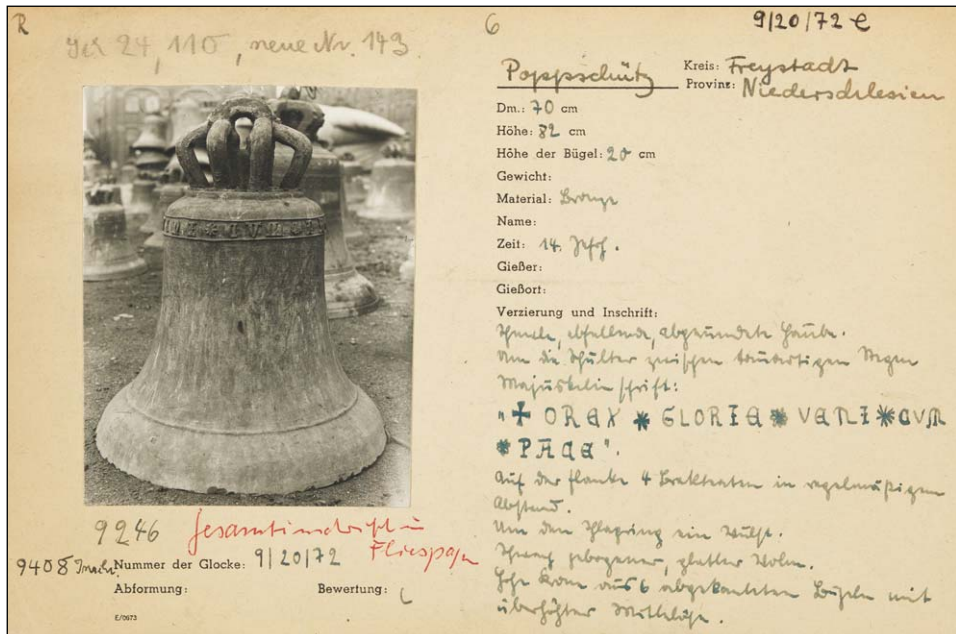 R
24, 110, neue Nr. 143.
9246 Gesamtinschrift u
Fliespapier
9408 Inschr. Nummer der Glocke: 9/20/72
Abformung: Bewertung:
E/0673
6
9/20/72 C
Poppschütz
Kreis: Freystadt
Provinz: Niederschlesien
Dm.: 70 cm
Höhe: 82 cm
Höhe der Bügel: 20 cm
Gewicht:
Material: Bronze
Name:
Zeit: 14. Jhrh.
Gießer:
Gießort:
Verzierung und Inschrift:
abfallende, abgerundete Haube.
Um die Schulter zwischen tauartigen Stegen
Majuskelinschrift:
"✚ OREX ✱ GLORIE ✱ VENI ✱ CVM
✱ PACE".
Auf der Flanke 4 Brakteaten in regelmäßigen
Abstand.
Um den Schlagring ein Wulst.
Schwach gebogener, glatter Wolm.
Hohe Krone aus 6 abgekanteten Bügeln mit
überhöhter Mittelöse.